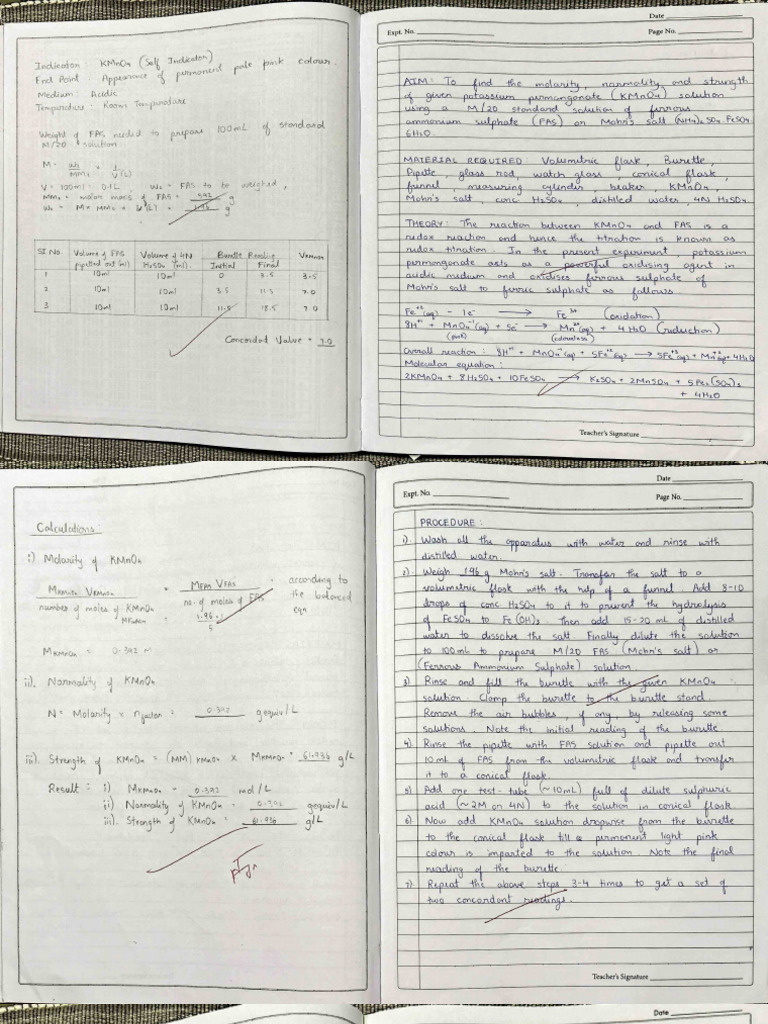 Indicator : KMnO4 (Self Indicator)
End Point : Appearance of permanent pale pink colour.
Medium : Acidic
Temperature : Room Temperature
Weight of FAS needed to prepare 100mL of standard
M/20 solution
M = w2/MM2 × 1/V(L)
V = 100ml = 0.1L, w2 = FAS to be weighed,
MM2 = molar mass of FAS = 392 g
w2 = M × MM2 × V(L) = 1.96 g
SI No. Volume of FAS pipetted out (ml) Volume of 4N H2SO4 (ml) Burette Reading Initial Final VKMnO4
1 10ml 10ml 0 3.5 3.5
2 10ml 10ml 3.5 11.5 7.0
3 10ml 10ml 11.5 18.5 7.0
Concordant Value = 7.0
Date
Expt. No. Page No.
AIM: To find the molarity, normality and strength
of given potassium permanganate (KMnO4) solution
using a M/20 standard solution of ferrous
ammonium sulphate (FAS) or Mohr's salt (NH4)2 SO4 FeSO4
6H2O
MATERIAL REQUIRED Volumetric flask, Burette,
Pipette, glass rod, watch glass, conical flask,
funnel, measuring cylinder, beaker, KMnO4,
Mohr's salt, conc H2SO4, distilled water, 4N H2SO4
THEORY: The reaction between KMnO4 and FAS is a
redox reaction and hence the titration is known as
redox titration. In the present experiment, potassium
permanganate acts as a powerful oxidising agent in
acidic medium and oxidises ferrous sulphate of
Mohr's salt to ferric sulphate as follows.
Fe+2(aq) - 1e- → Fe3+ (oxidation)
8H+ + MnO4-(aq) + 5e- → Mn2+(aq) + 4H2O (reduction)
(pink) (colourless)
Overall reaction : 8H+ + MnO4-(aq) + 5Fe+2(aq) → 5Fe+3(aq) + Mn+2(aq) + 4H2O
Molecular equation :
2KMnO4 + 8H2SO4 + 10FeSO4 → K2SO4 + 2MnSO4 + 5Fe2(SO4)3
+ 4H2O
Teacher's Signature
Calculations :
i) Molarity of KMnO4
MKMnO4 VKMnO4 / number of moles of KMnO4 = MFAS VFAS / no. of moles of FAS · according to
the balanced
eqn
MKMnO4 = 1.96 · 1 / 5
MKMnO4 = 0.392 M
ii). Normality of KMnO4
N = Molarity × nfactor = 0.392 gequiv/L
iii). Strength of KMnO4 = (MM) KMnO4 × MKMnO4 = 61.936 g/L
Result : i) MKMnO4 = 0.392 mol/L
ii) Normality of KMnO4 = 0.392 gequiv/L
iii). Strength of KMnO4 = 61.936 g/L
Date
Expt. No. Page No.
PROCEDURE :
1). Wash all the apparatus with water and rinse with
distilled water.
2). Weigh 1.96 g Mohr's salt. Transfer the salt to a
volumetric flask with the help of a funnel. Add 8-10
drops of conc H2SO4 to it to prevent the hydrolysis
of FeSO4 to Fe(OH)2. Then add 15-20 mL of distilled
water to dissolve the salt. Finally dilute the solution
to 100mL to prepare M/20 FAS (Mohr's salt) or
(Ferrous Ammonium Sulphate) solution.
3) Rinse and fill the burette with the given KMnO4
solution. Clamp the burette to the burette stand
Remove the air bubbles, if any, by releasing some
solutions. Note the initial reading of the burette.
4) Rinse the pipette with FAS solution and pipette out
10mL of FAS from the volumetric flask and transfer
it to a conical flask.
5) Add one test-tube (~10mL) full of dilute sulphuric
acid (~2M or 4N) to the solution in conical flask.
6) Now add KMnO4 solution dropwise from the burette
to the conical flask till a permanent light pink
colour is imparted to the solution. Note the final
reading of the burette.
7) Repeat the above steps 3-4 times to get a set of
two concordant readings.
Teacher's Signature
Date